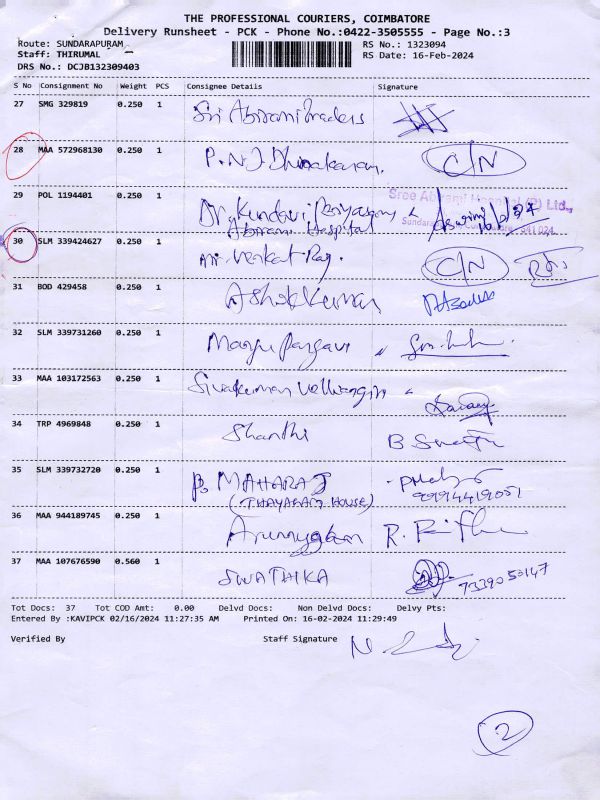 THE PROFESSIONAL COURIERS, COIMBATORE
Delivery Runsheet - PCK - Phone No.:0422-3505555 - Page No.:3
Route: SUNDARAPURAM
RS No.: 1323094
Staff: THIRUMAL
RS Date: 16-Feb-2024
DRS No.: DCJB132309403
S No Consignment No Weight PCS Consignee Details Signature
27 SMG 329819 0.250 1 Sri Abirami Traders
28 MAA 572968130 0.250 1 P.N.J. Dhinakaran. C/N
29 POL 1194401 0.250 1 Dr. Kundavi
Abirami Hospital
Sree Abirami Hospital (P) Ltd.,
30 SLM 339424627 0.250 1 Venkat Raj. C/N
31 BOD 429458 0.250 1 Ashok Kumar
32 SLM 339731260 0.250 1
33 MAA 103172563 0.250 1 Sivakumar
34 TRP 4969848 0.250 1 Shanthi
35 SLM 339732720 0.250 1 P. MAHARAJ
(THAYAGAM HOUSE)
36 MAA 944189745 0.250 1 Arumugam R.
37 MAA 107676590 0.560 1 SWATHIKA
Tot Docs: 37 Tot COD Amt: 0.00 Delvd Docs: Non Delvd Docs: Delvy Pts:
Entered By :KAVIPCK 02/16/2024 11:27:35 AM Printed On: 16-02-2024 11:29:49
Verified By Staff Signature
2